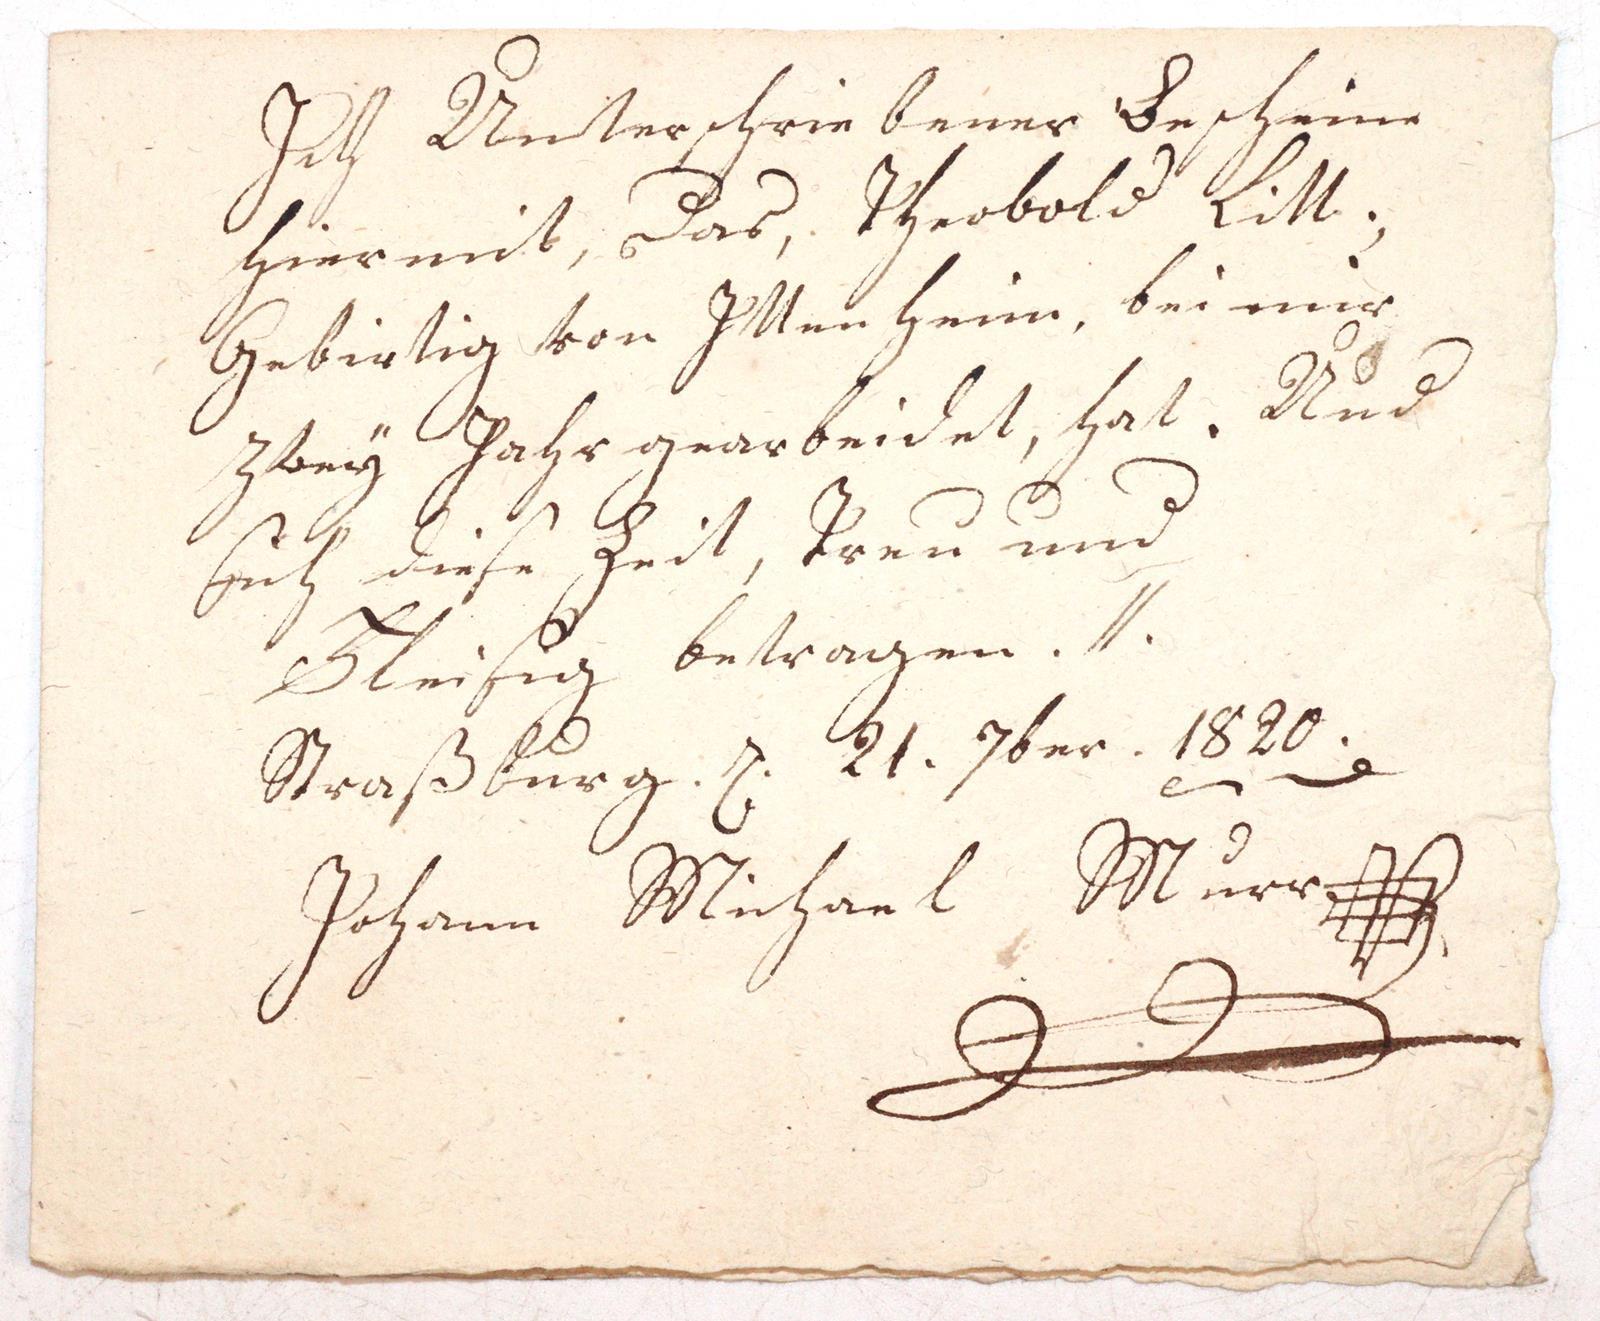 Ich Unterschriebener Bescheine
hiermit, das, Theobold Litt.,
Gebirtig von Ittenheim, bei mir
Zwey Jahr gearbeidet, hat. Und
sich diese Zeit, Treu und
Fleisig betragen. //.
Straßburg. d. 21. 7ber. 1820.
Johann Michael Murr